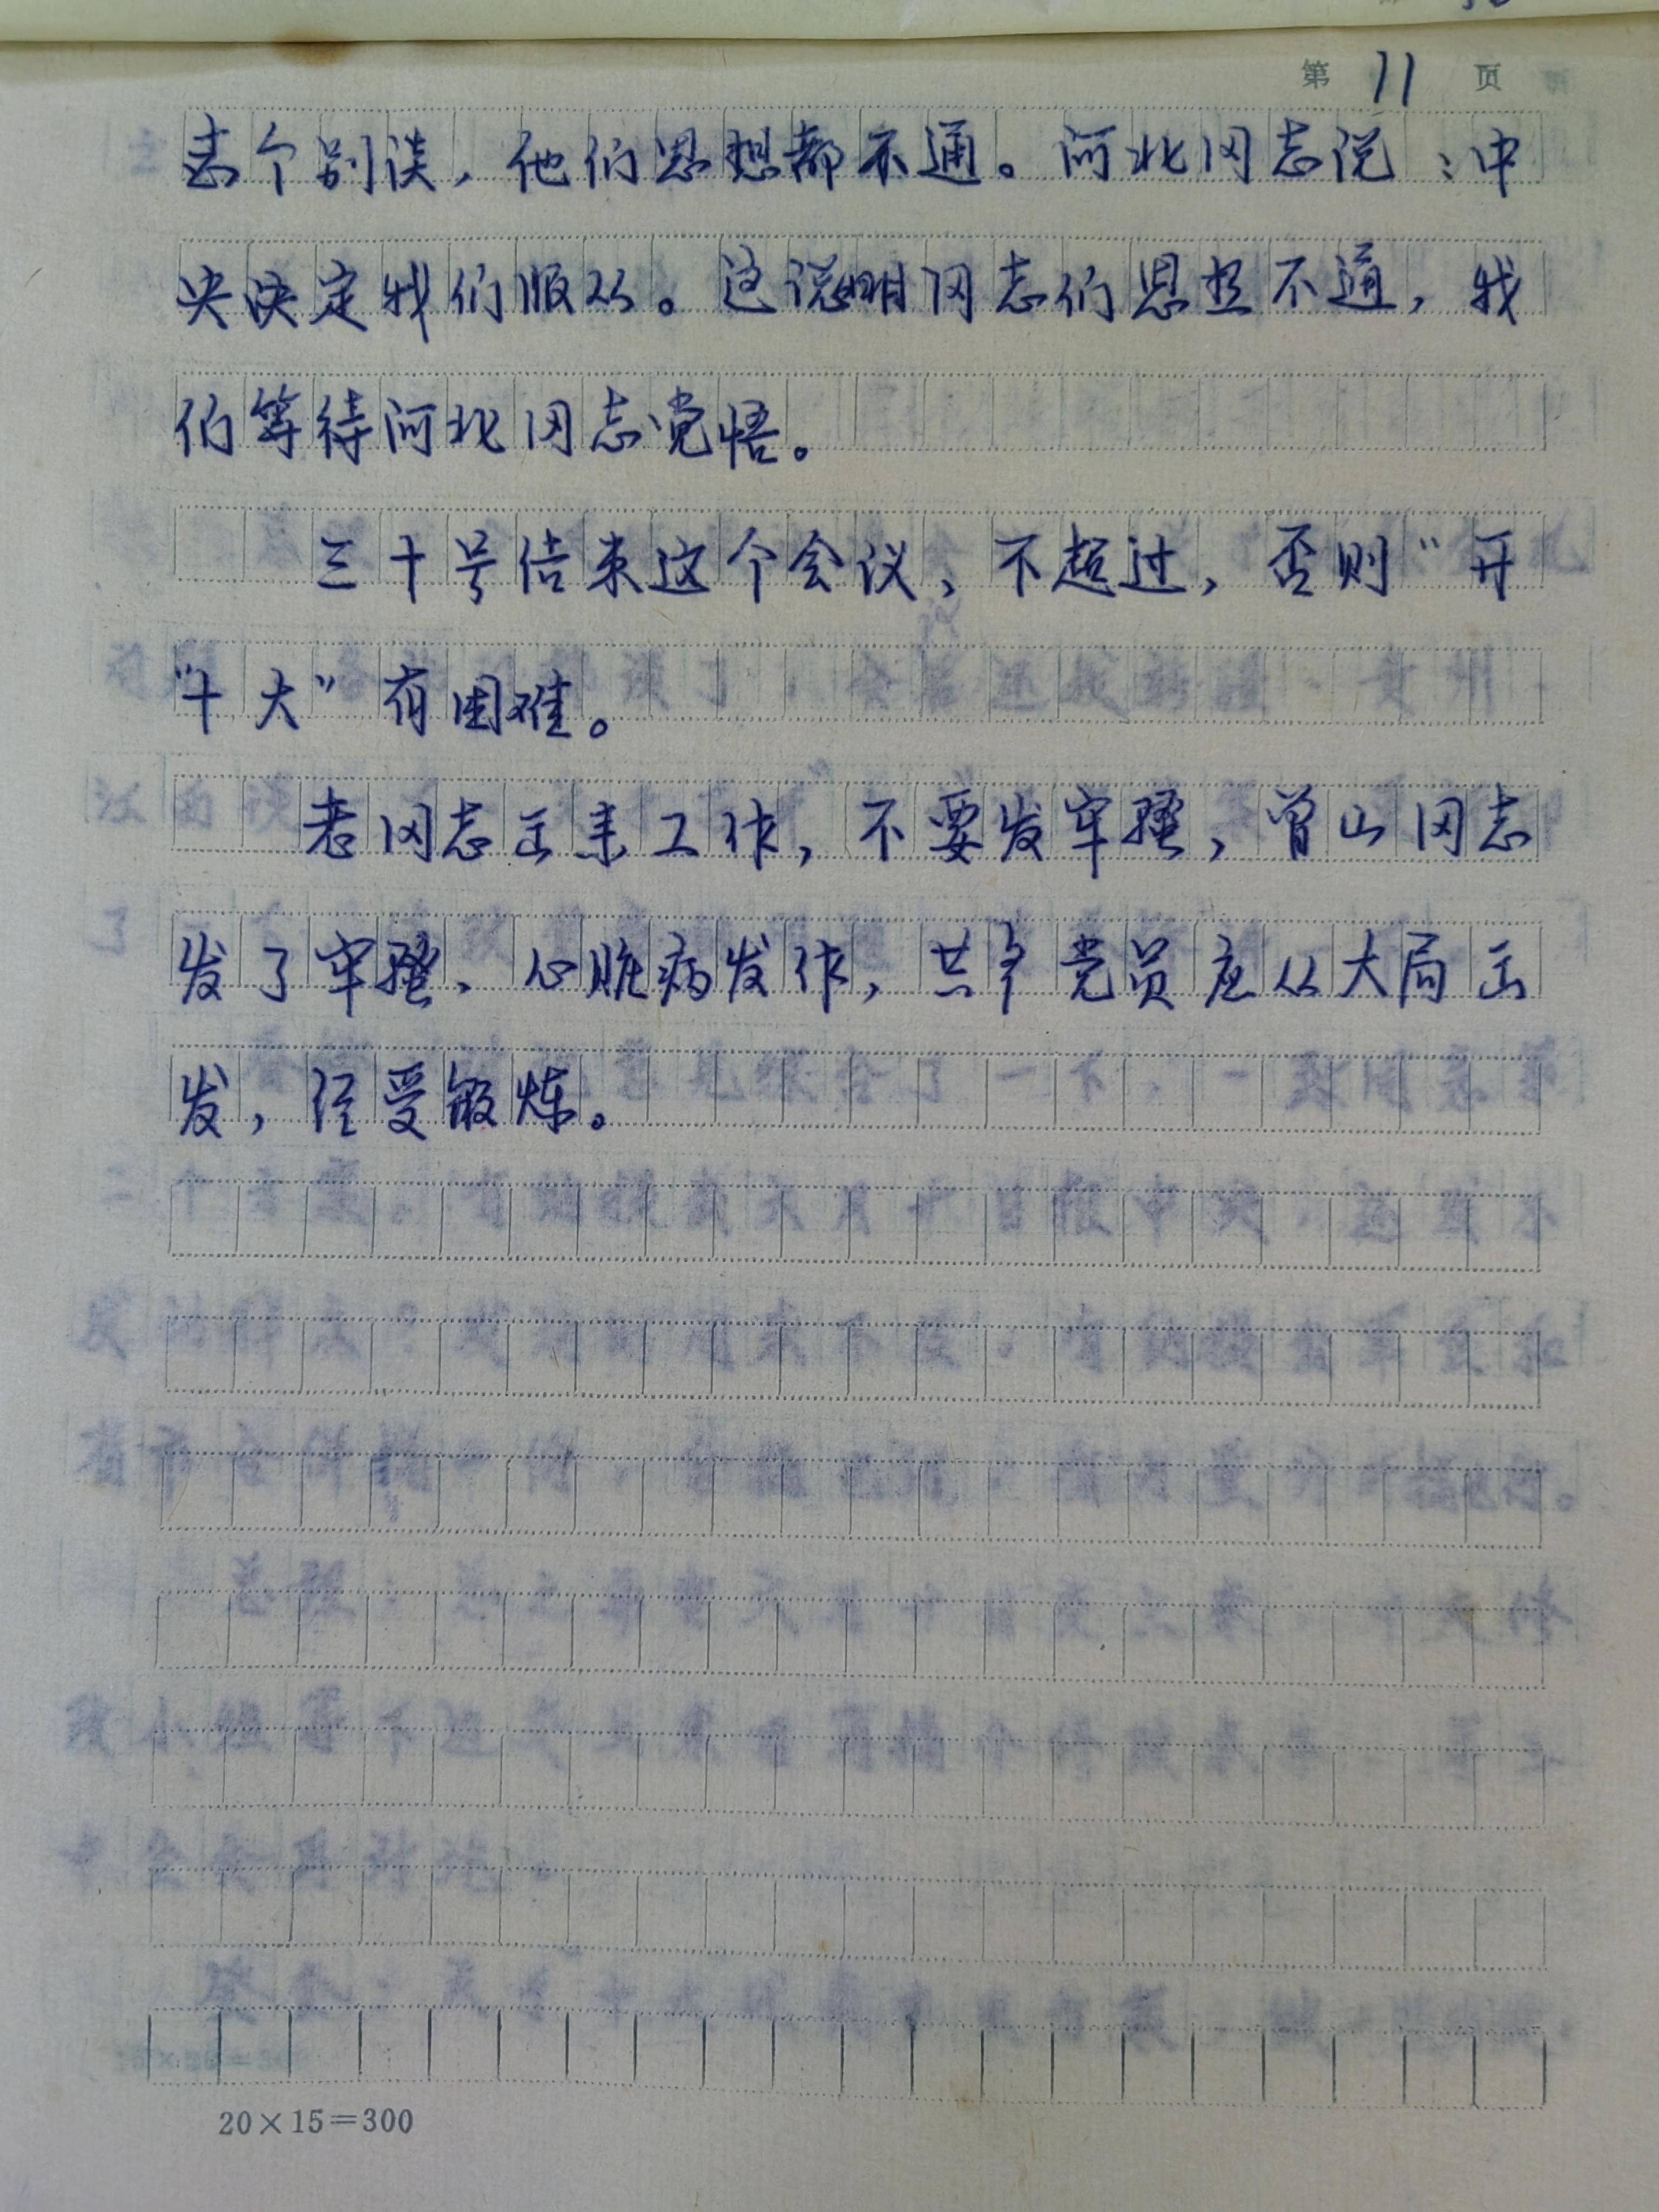 第 11 页
去个别谈，他们思想都不通。河北同志说：中
央决定我们服从。这说明同志们思想不通，我
们等待河北同志觉悟。
三十号结束这个会议，不超过，否则“开
“十大”有困难。
老同志出来工作，不要发牢骚，曾山同志
发了牢骚、心脏病发作，共产党员应从大局出
发，经受锻炼。
20×15=300